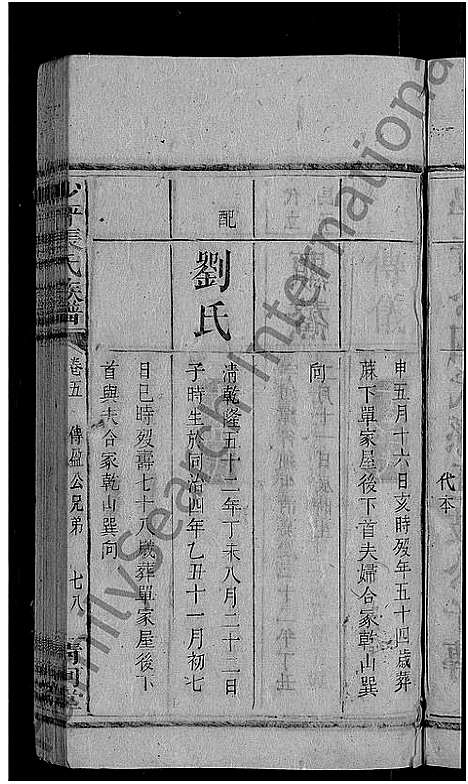 申五月十六日亥時歿年五十四歲葬
蔴下單家屋後下首夫婦合冢乾山巽
向
配
劉氏
清乾隆五十二年丁未八月二十二日
子時生於同治四年乙丑十一月初七
日巳時歿壽七十八歲葬單家屋後下
首與夫合冢乾山巽向
張氏族譜
卷五
傳盈公兄弟
七八
代本
FamilySearch International